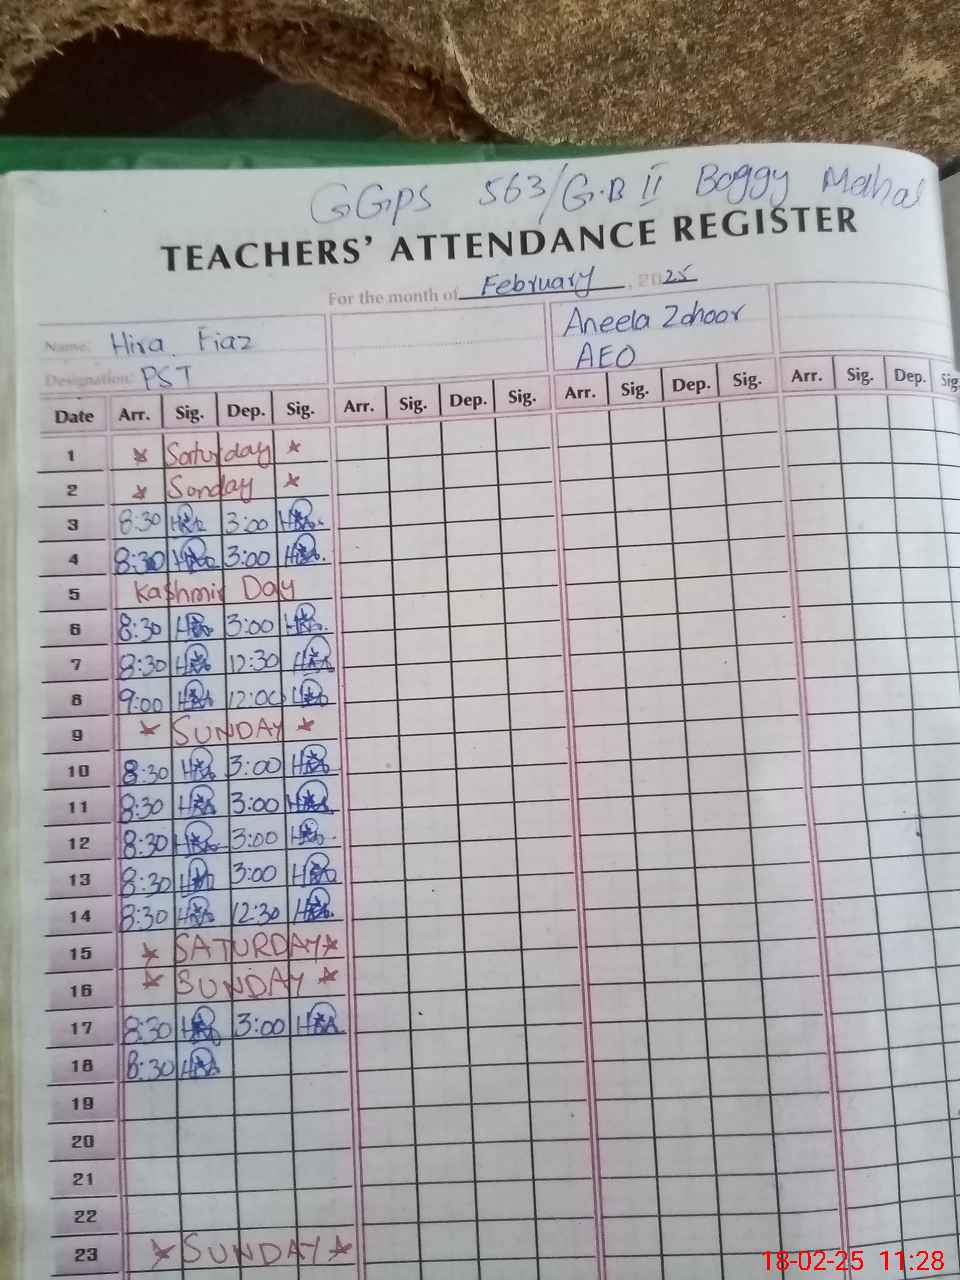 GGPS 563/G.B II Boggy Mahal
TEACHERS' ATTENDANCE REGISTER
For the month of February, 2025
Name: Hira Fiaz
Aneela Zahoor
Designation: PST
AEO
Date Arr. Sig. Dep. Sig. Arr. Sig. Dep. Sig. Arr. Sig. Dep. Sig. Arr. Sig. Dep. Sig.
1 * Saturday *
2 * Sunday *
3 8:30 3:00
4 8:30 3:00
5 Kashmir Day
6 8:30 3:00
7 8:30 12:30
8 9:00 12:00
9 * SUNDAY *
10 8:30 3:00
11 8:30 3:00
12 8:30 3:00
13 8:30 3:00
14 8:30 12:30
15 * SATURDAY *
16 * SUNDAY *
17 8:30 3:00
18 8:30
19
20
21
22
23 * SUNDAY *
18-02-25 11:28